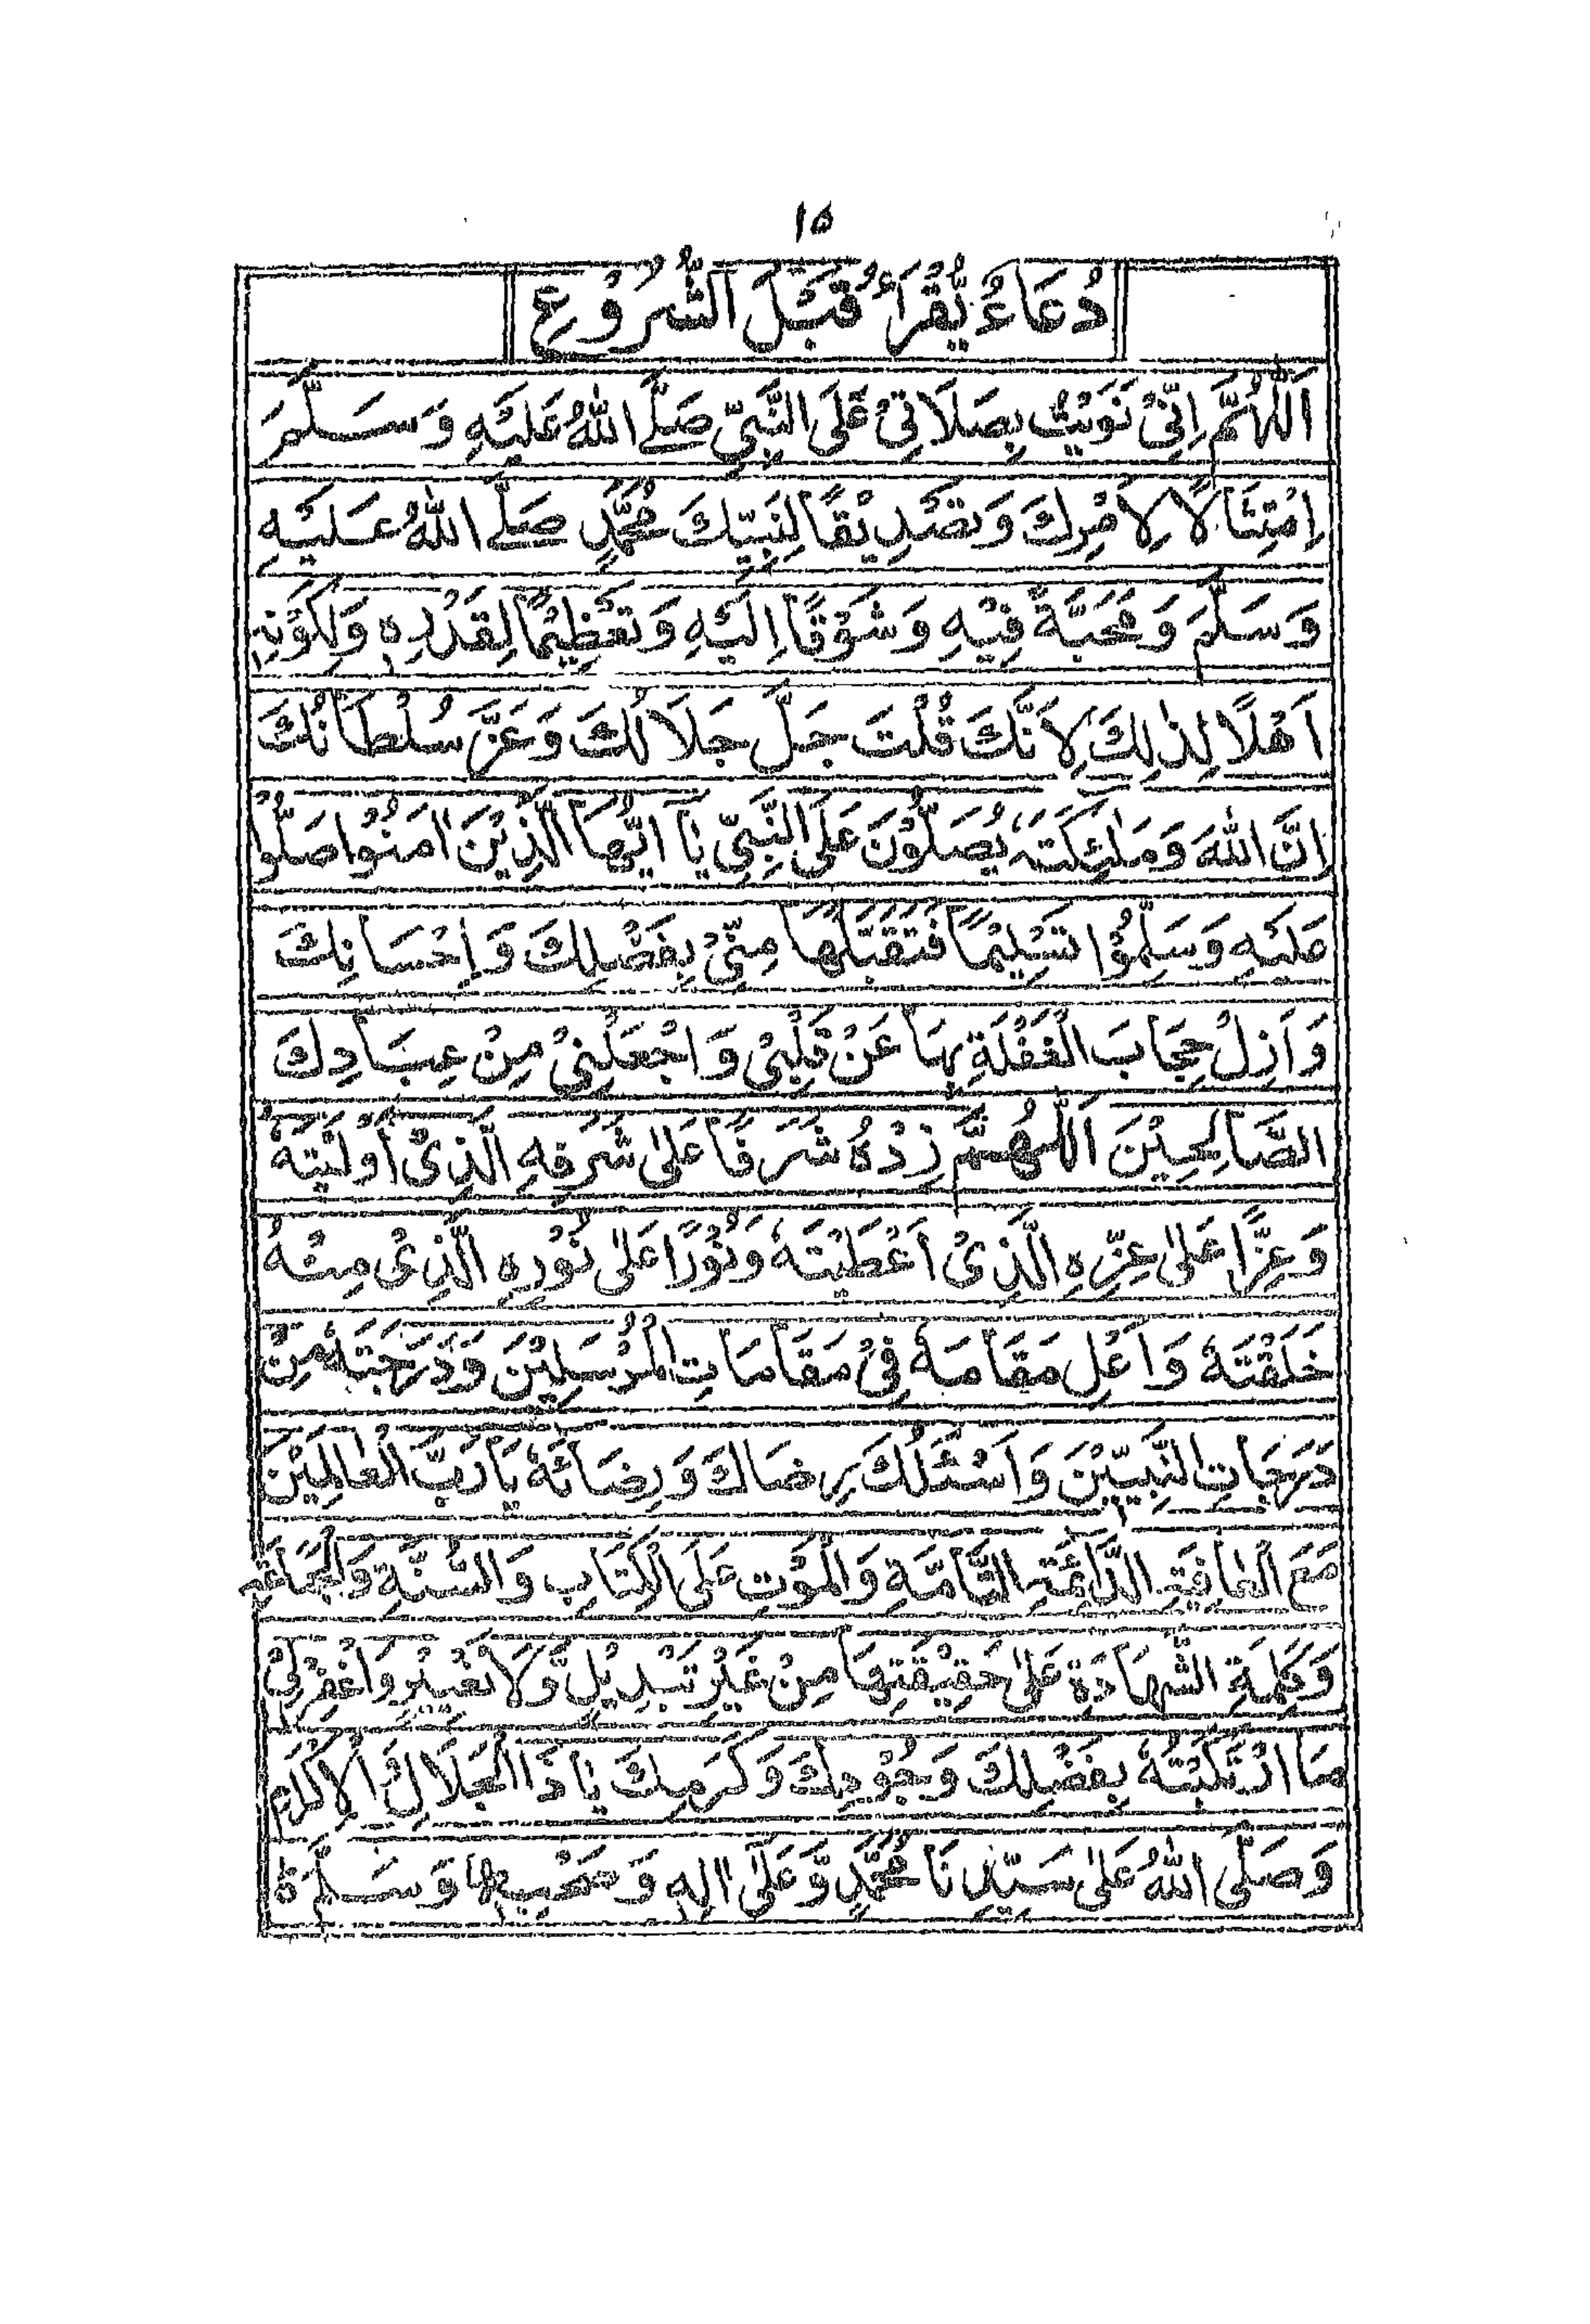 ۱۵
دُعَاءٌ يُّقْرَأُ قَبْلَ الشُّرُوْعِ
اَللّٰهُمَّ اِنِّىْ نَوَيْتُ بِصَلَاتِىْ عَلَى النَّبِىِّ صَلَّے اللّٰهُ عَلَيْهِ وَسَلَّمَ
اِمْتِثَالًا لِاَمْرِكَ وَتَصْدِيْقًا لِنَبِيِّكَ مُحَمَّدٍ صَلَّے اللّٰهُ عَلَيْهِ
وَسَلَّمَ وَمَحَبَّةً فِيْهِ وَشَوْقًا اِلَيْهِ وَتَعْظِيْمًا لِقَدْرِهٖ وَلِكَوْنِهٖ
اَهْلًا لِذٰلِكَ لِاَنَّكَ قُلْتَ جَلَّ جَلَالُكَ وَعَزَّ سُلْطَانُكَ
اِنَّ اللّٰهَ وَمَلٰئِكَتَهٗ يُصَلُّوْنَ عَلَى النَّبِىِّ يَآ اَيُّهَا الَّذِيْنَ اٰمَنُوْا صَلُّوْا
عَلَيْهِ وَسَلِّمُوْا تَسْلِيْمًا فَتَقَبَّلْهَا مِنِّىْ بِفَضْلِكَ وَاِحْسَانِكَ
وَاَزِلْ حِجَابَ الْغَفْلَةِ بِهَا عَنْ قَلْبِىْ وَاجْعَلْنِىْ مِنْ عِبَادِكَ
الصَّالِحِيْنَ اَللّٰهُمَّ زِدْهُ شَرَفًا عَلٰى شَرَفِهِ الَّذِىْ اَوْلَيْتَهٗ
وَعِزًّا عَلٰى عِزِّهِ الَّذِىْ اَعْطَيْتَهٗ وَنُوْرًا عَلٰى نُوْرِهِ الَّذِىْ مِنْهُ
خَلَقْتَهٗ وَاَعْلِ مَقَامَهٗ فِىْ مَقَامَاتِ الْمُرْسَلِيْنَ وَدَرَجَتَهٗ مِنْ
دَرَجَاتِ النَّبِيِّيْنَ وَاَسْئَلُكَ رِضَاكَ وَرِضَائَهٗ يَا رَبَّ الْعٰالَمِيْنَ
مَعَ الْعَافِيَةِ الدَّائِمَةِ التَّامَّةِ وَالْمَوْتِ عَلَى الْكِتَابِ وَالسُّنَّةِ وَالْجَمَاعَةِ
وَكَلِمَةِ الشَّهَادَةِ عَلٰى حَقِيْقَتِهَا مِنْ غَيْرِ تَبْدِيْلٍ وَّلَا تَغْيِيْرٍ وَاغْفِرْ لِىْ
مَا ارْتَكَبْتُهٗ بِفَضْلِكَ وَجُوْدِكَ وَكَرَمِكَ يَا ذَا الْجَلَالِ وَالْاِكْرَامِ
وَصَلَّى اللّٰهُ عَلٰى سَيِّدِنَا مُحَمَّدٍ وَّعَلٰى اٰلِهٖ وَصَحْبِهٖ وَسَلَّمَ ۃ